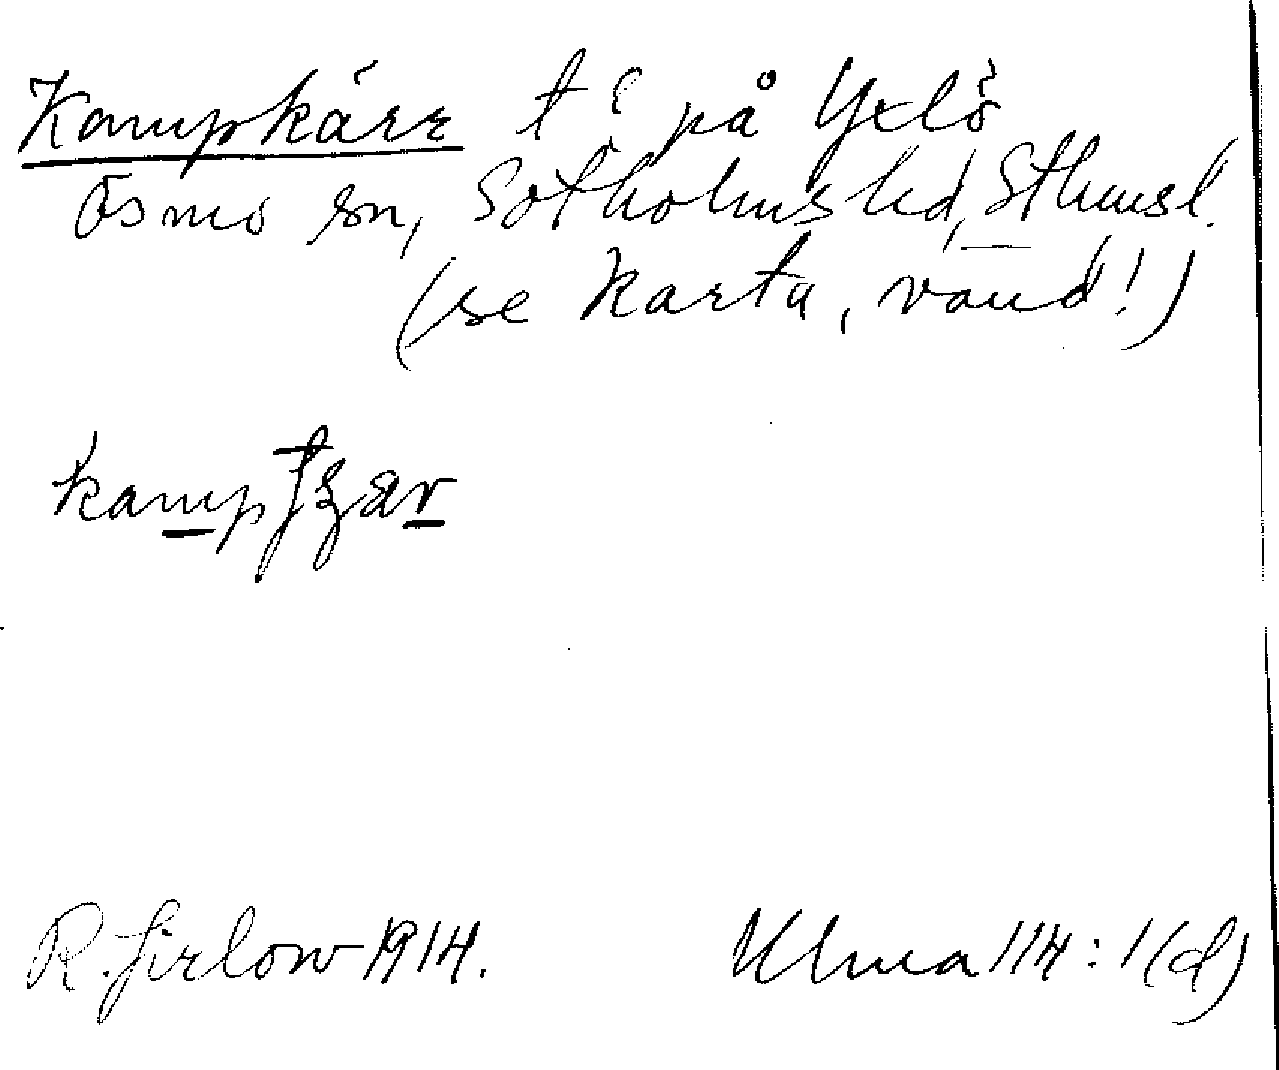 Kampkärr t ? på Yxlö
Ösmo sn, Sotholms hd, Sthmsl.
(se karta, vänd!)
kamp
R. Jirlow 1914.
Ulma 114:1(d)